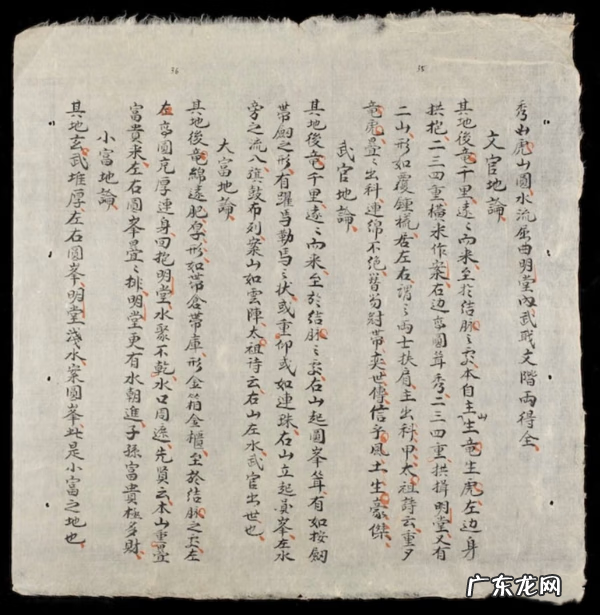 35
秀山虎山圓水流屈曲明堂内武戎文階兩得全
文官地論
其地後竜千里遠〻而来至於結脉〻处本自主山生竜生虎左边身
拱抱二三四重橫来作案右边亦圓茸秀二三四重拱揖明堂又有
二山形如覆鍾居左右謂〻兩士扶肩主出科甲太祖詩云重夕
竜虎疊〻出科連綿不绝簪笏財帶奕世傳信乎風土生豪傑
武官地論
其地後竜千里遠〻而来至於结脉〻处右山起圓峯耸有如按劒
帶劒之形有躍馬勒馬〻状或重仰或如連珠右山立起員峯左水
旁之流八旗鼓布列案山如雲陣太祖詩云右山左水武官出世也
36
大富地論
其地後竜綿遠肥厚形如帶倉帶庫形金箱金櫃至於结脉之处左
右亦圓充厚連身回抱明堂水聚不乾水口周遮先賢云本山重疊
富貴来左右圓峯疊〻排明堂更有水朝進子孫富貴極多財
小富地論
其地玄武堆厚左右圓峯明堂淺水案圓峯此是小富之地也
广东龙网